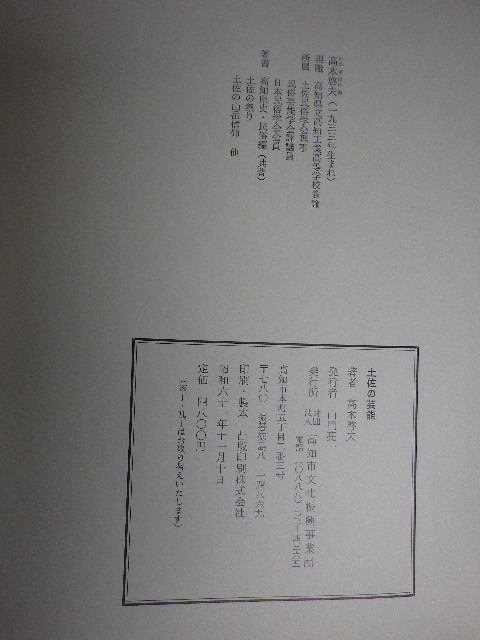 高木啓夫（一九三三年生まれ）
現職　高知県立高知工業高等学校教諭
所属　土佐民俗学会理事
民俗芸能学会評議員
日本民俗学会会員
著書　高知県史・民俗編（共著）
土佐の祭り
土佐の山岳信仰　他
土佐の芸能
著者　高木啓夫
発行者
発行所　財団法人　高知市文化振興事業団
高知市本町五丁目二番三号
電話
〒七八〇
印刷・製本　凸版印刷株式会社
昭和六十一年十一月十日
定価　四八〇〇円
（落丁・乱丁はお取り替えいたします）